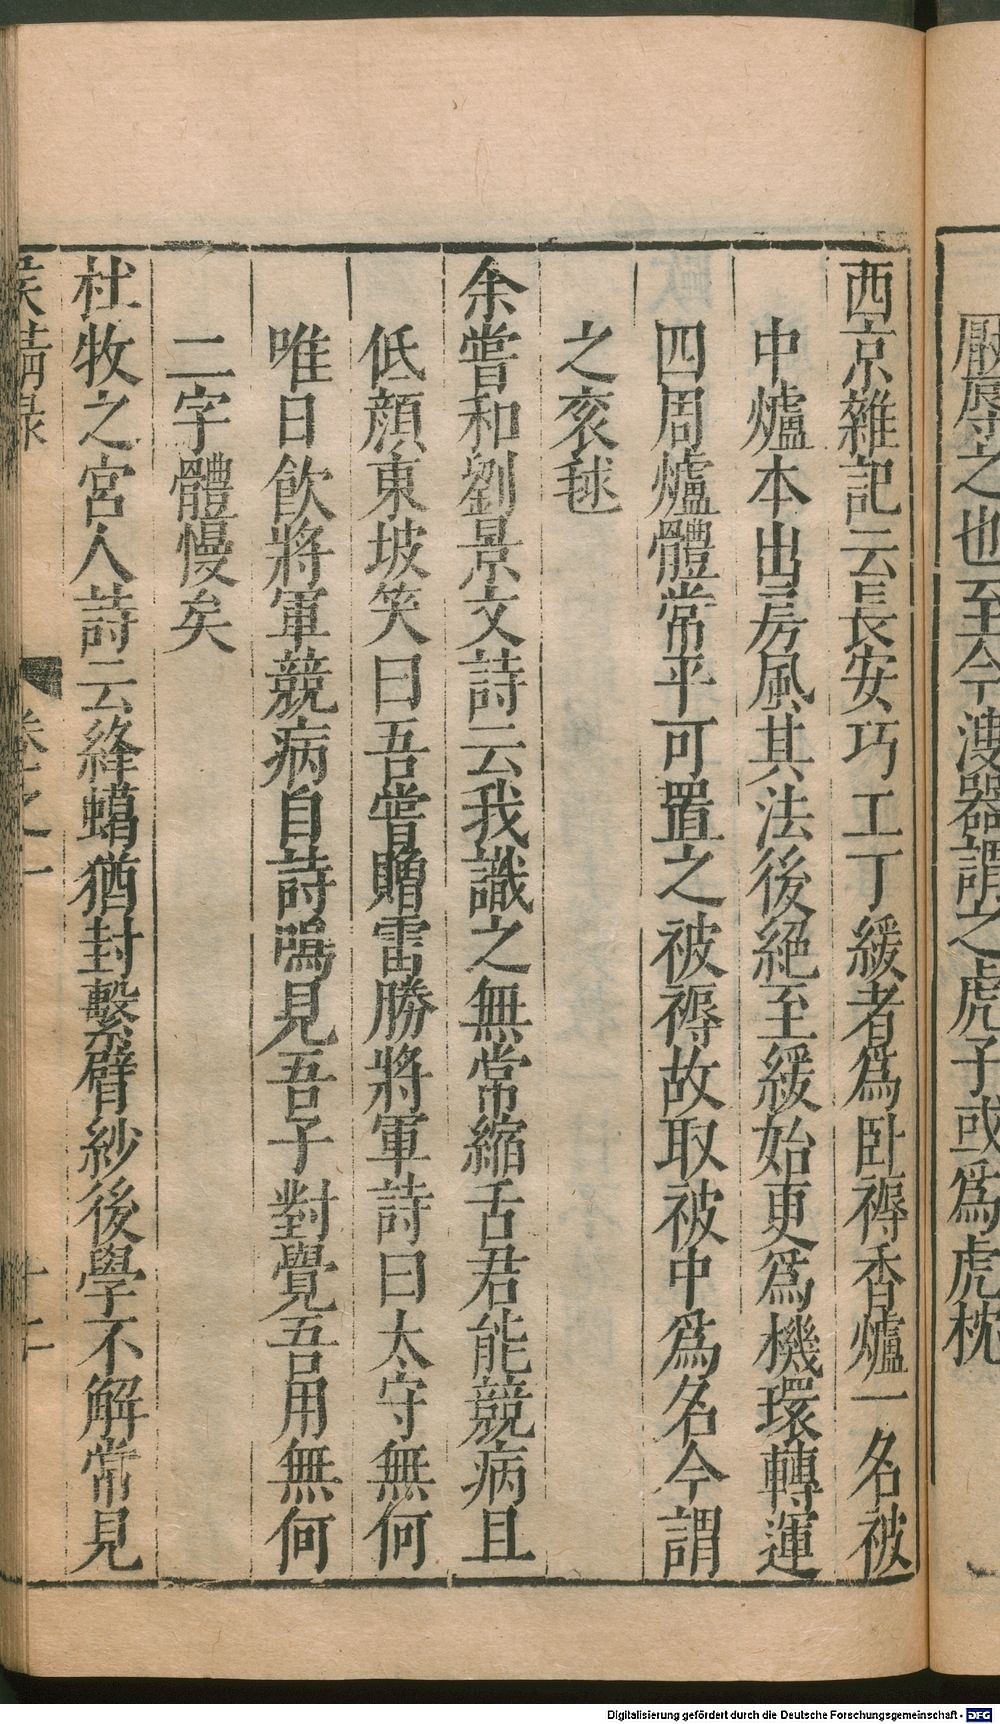 厭辱之也至今溲器謂之虎子或爲虎枕
西京雜記云長安巧工丁緩者爲卧褥香爐一名被
中爐本出房風其法後絕至緩始更爲機環轉運
四周爐體常平可置之被褥故取被中爲名今謂
之衮毬
余嘗和劉景文詩云我識之無常縮舌君能競病且
低顔東坡笑曰吾嘗贈雷勝將軍詩曰太守無何
唯日飲將軍競病自詩鳴見吾子對覺吾用無何
二字體慢矣
杜牧之宮人詩云絳蠟猶封繫臂紗後學不解常見
侯鯖錄 卷之一 十二
Digitalisierung gefördert durch die Deutsche Forschungsgemeinschaft - DFG